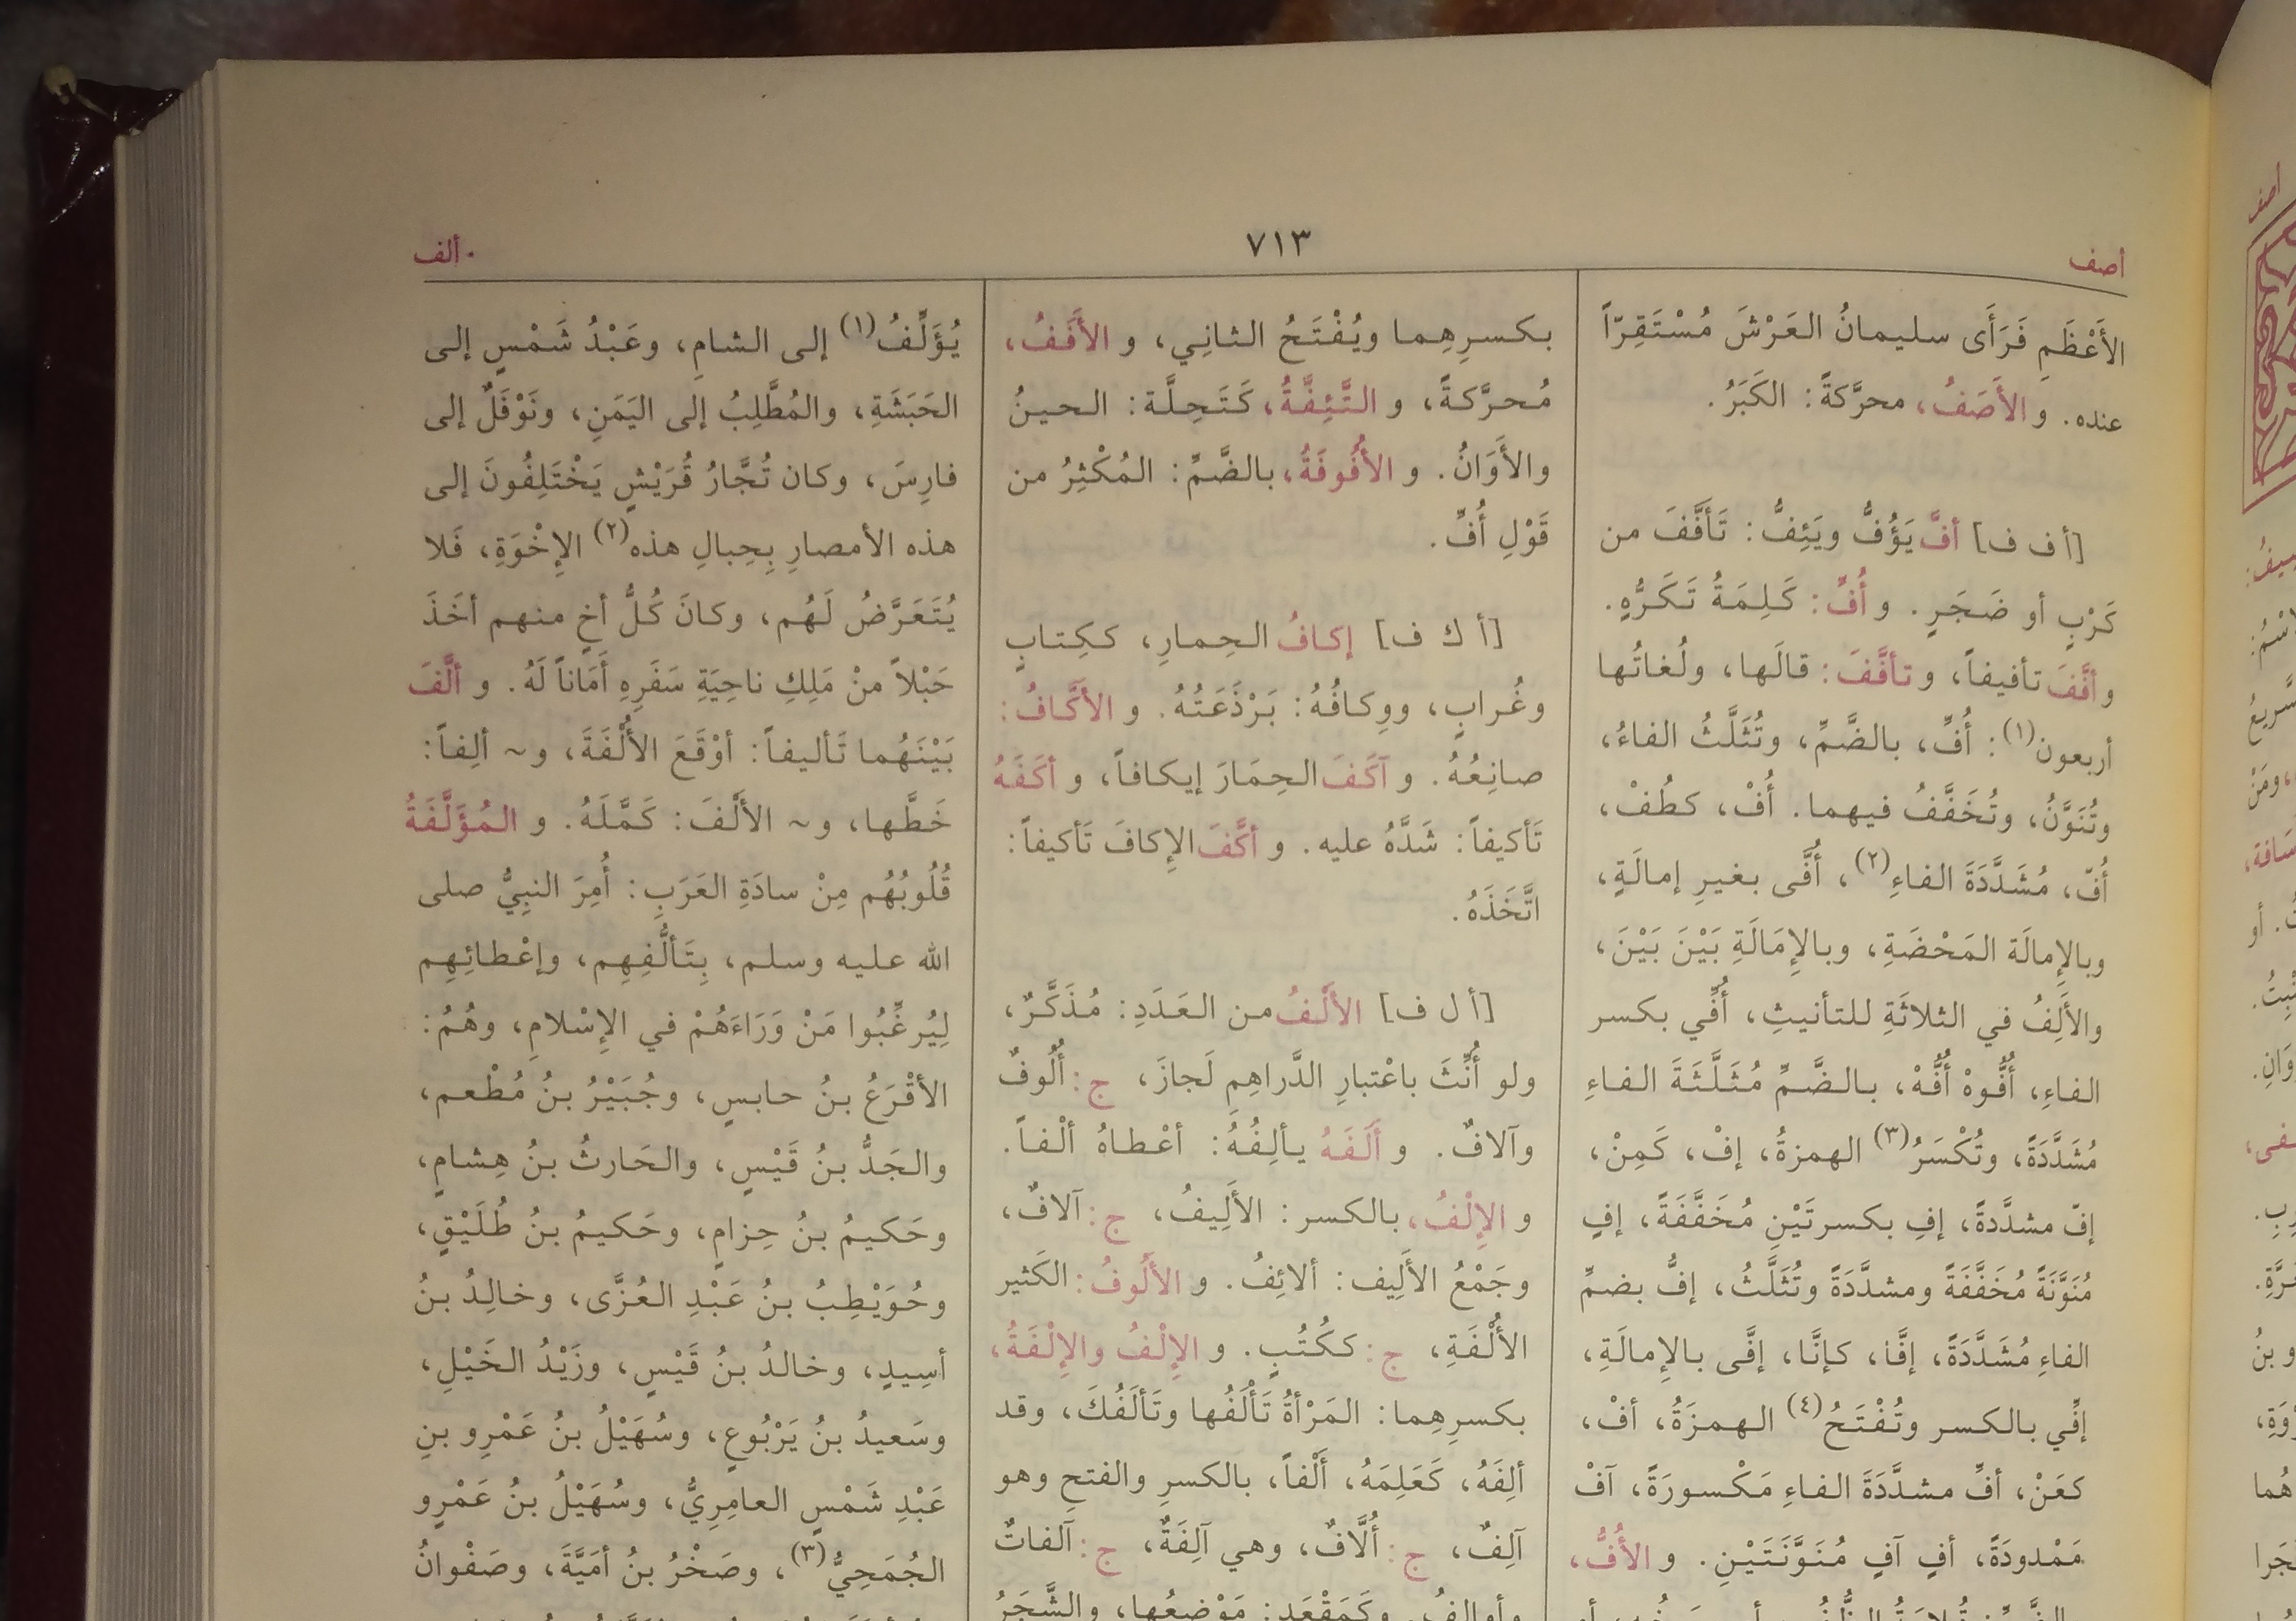 أصف
٧١٣
ألف
الأَعْظَمِ فَرَأَى سليمانُ العَرْشَ مُسْتَقِرّاً
عنده. و الأَصَفُ، محرَّكةً: الكَبَرُ.
[أ ف ف] أفَّ يَؤُفُّ ويَئِفُّ: تَأفَّفَ من
كَرْبٍ أو ضَجَرٍ. و أُفٍّ: كَلِمَةُ تَكَرُّهٍ.
و أفَّفَ تأفيفاً، و تأفَّفَ: قالَها، ولُغاتُها
أربعون(١): أُفِّ، بالضَّمِّ، وتُثَلَّثُ الفاءُ،
وتُنَوَّنُ، وتُخَفَّفُ فيهما. أُفْ، كطُفْ،
أُفّ، مُشَدَّدَةَ الفاءِ(٢)، أُفَّى بغيرِ إمالَةٍ،
وبالإِمالَة المَحْضَةِ، وبالإِمَالَةِ بَيْنَ بَيْنَ،
والأَلِفُ في الثلاثَةِ للتأنيثِ، أُفِّي بكسر
الفاءِ، أُفُّوهْ أُفُّهْ، بالضَّمِّ مُثَلَّثَةَ الفاءِ
مُشَدَّدَةً، وتُكْسَرُ(٣) الهمزةُ، إفْ، كَمِنْ،
إفّ مشدَّدةً، إفِ بكسرتَيْنِ مُخَفَّفَةً، إفٍ
مُنَوَّنَةً مُخَفَّفَةً ومشدَّدَةً وتُثَلَّثُ، إفُّ بضمِّ
الفاءِ مُشَدَّدَةً، إفَّا، كإنَّا، إفَّى بالإِمالَةِ،
إفِّي بالكسر وتُفْتَحُ(٤) الهمزَةُ، أفْ،
كعَنْ، أفِّ مشدَّدَةَ الفاءِ مَكْسورَةً، آفْ
مَمْدودَةً، أفٍ آفٍ مُنَوَّنَتَيْنِ. و الأُفُّ،
بكسرِهِما ويُفْتَحُ الثانِي، و الأَفَفُ،
مُحرَّكةً، و التَّئِفَّةُ، كَتَحِلَّة: الحينُ
والأَوَانُ. و الأُفُوفَةُ، بالضَّمِّ: المُكْثِرُ من
قَوْلِ أُفٍّ.
[أ ك ف] إكافُ الحِمارِ، ككِتابٍ
وغُرابٍ، ووِكافُهُ: بَرْذَعَتُهُ. و الأَكَّافُ:
صانِعُهُ. و آكَفَ الحِمَارَ إيكافاً، و أكَفَهُ
تَأكيفاً: شَدَّهُ عليه. و أكَّفَ الإِكافَ تَأكيفاً:
اتَّخَذَهُ.
[أ ل ف] الأَلْفُ من العَدَدِ: مُذَكَّرٌ،
ولو أُنِّثَ باعْتبارِ الدَّراهِمِ لَجازَ، ج: أُلُوفٌ
وآلافٌ. و أَلَفَهُ يألِفُهُ: أعْطاهُ ألْفاً.
و الإِلْفُ، بالكسر: الأَلِيفُ، ج: آلافٌ،
وجَمْعُ الأَلِيف: ألائِفُ. و الأَلُوفُ: الكَثير
الأُلْفَةِ، ج: ككُتُبٍ. و الإِلْفُ والإِلْفَةُ،
بكسرِهِما: المَرْأةُ تَأْلَفُها وتَألَفُكَ، وقد
ألِفَهُ، كَعَلِمَهُ، أَلْفاً، بالكسرِ والفتحِ وهو
آلِفٌ، ج: أُلَّافٌ، وهي آلِفَةٌ، ج: آلفاتٌ
وأوالِفُ. وكَمَقْعَدٍ: مَوْضِعُها، والشَّجَرُ
يُؤَلِّفُ(١) إلى الشامِ، وعَبْدُ شَمْسٍ إلى
الحَبَشَةِ، والمُطَّلِبُ إلى اليَمَنِ، ونَوْفَلٌ إلى
فارِسَ، وكان تُجَّارُ قُرَيْشٍ يَخْتَلِفُونَ إلى
هذه الأمصارِ بِحِبالِ هذه(٢) الإِخْوَةِ، فَلا
يُتَعَرَّضُ لَهُم، وكانَ كُلُّ أخٍ منهم أخَذَ
حَبْلاً منْ مَلِكِ ناحِيَةِ سَفَرِهِ أَمَاناً لَهُ. و ألَّفَ
بَيْنَهُما تَأليفاً: أوْقَعَ الأُلْفَةَ، و~ ألِفاً:
خَطَّها، و~ الأَلْفَ: كَمَّلَهُ. و المُؤَلَّفَةُ
قُلُوبُهُم مِنْ سادَةِ العَرَبِ: أُمِرَ النبِيُّ صلى
الله عليه وسلم، بِتَألُّفِهِم، وإعْطائِهِم
لِيُرغِّبُوا مَنْ وَرَاءَهُمْ في الإِسْلامِ، وهُمُ:
الأقْرَعُ بنُ حابسٍ، وجُبَيْرُ بنُ مُطْعم،
والجَدُّ بنُ قَيْسٍ، والحَارثُ بنُ هِشامٍ،
وحَكيمُ بنُ حِزامٍ، وحَكيمُ بنُ طُلَيْقٍ،
وحُوَيْطِبُ بنُ عَبْدِ العُزَّى، وخالِدُ بنُ
أسِيدٍ، وخالدُ بنُ قَيْسٍ، وزَيْدُ الخَيْلِ،
وسَعيدُ بنُ يَرْبُوعٍ، وسُهَيْلُ بنُ عَمْرِو بنِ
عَبْدِ شَمْسٍ العامِرِيُّ، وسُهَيْلُ بنُ عَمْرٍو
الجُمَحِيُّ(٣)، وصَخْرُ بنُ أمَيَّةَ، وصَفْوانُ